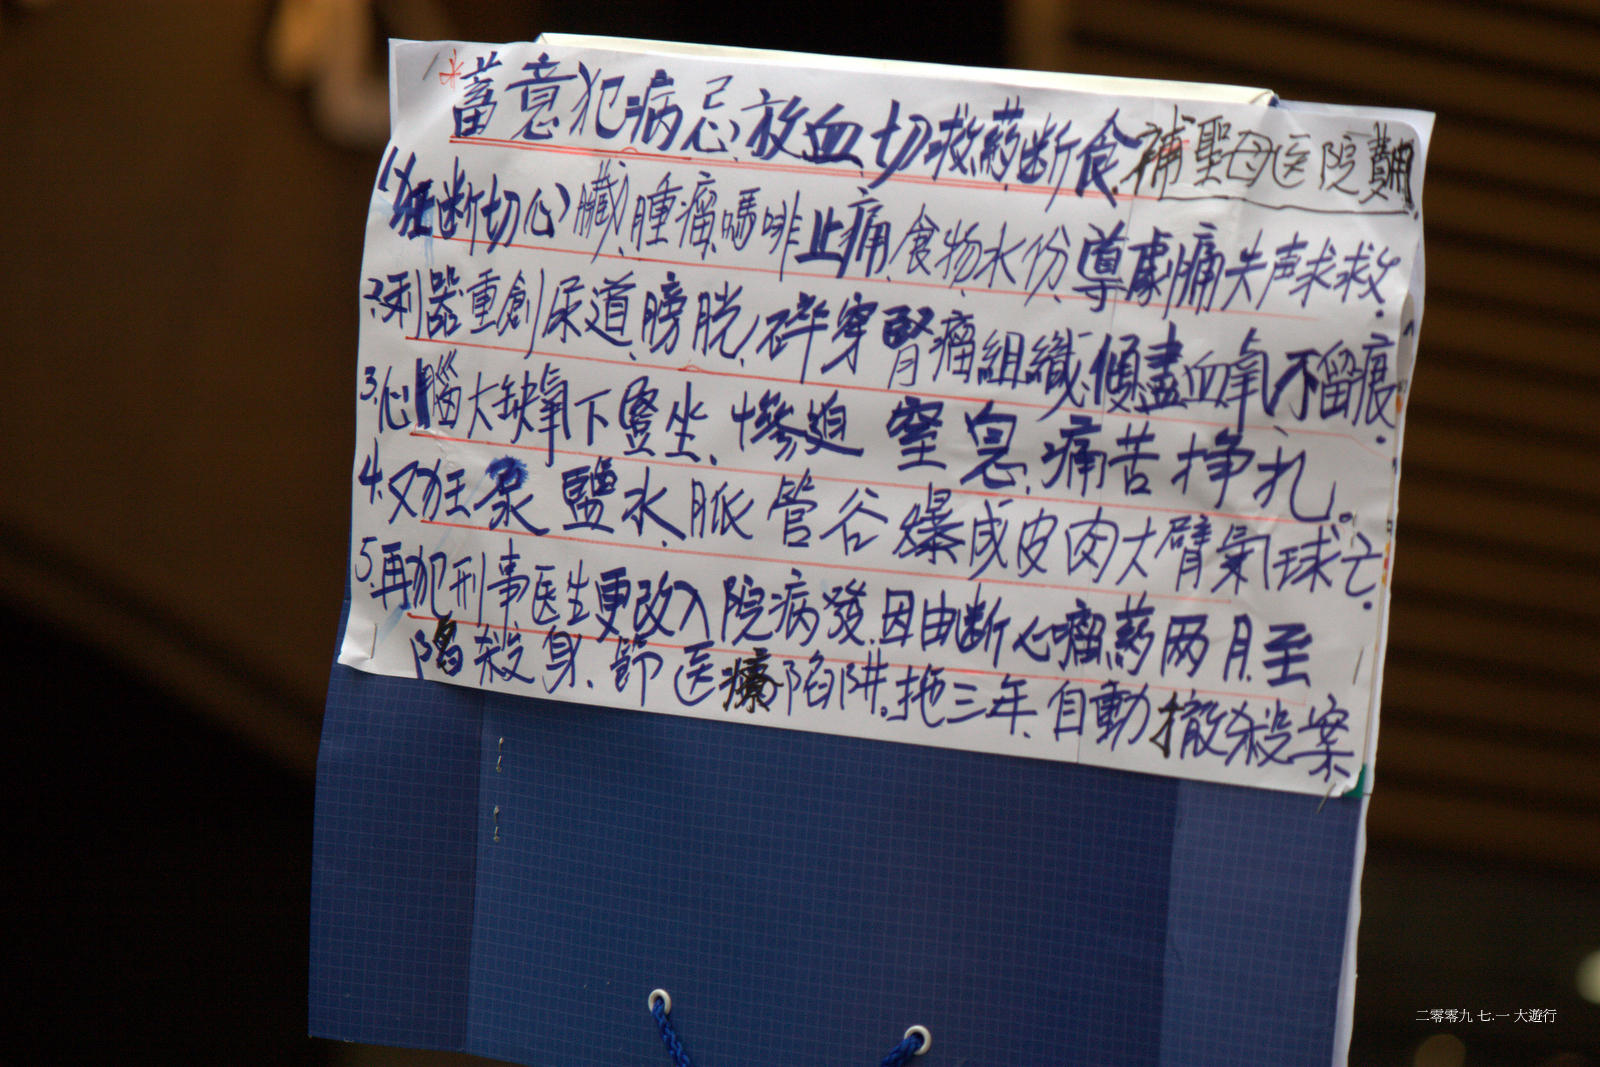 蓄意犯病忌放血切救药断食補聖母医院費用
1.狂断切心臟腫瘤嗎啡止痛食物水份導劇痛失声求救.
2.利器重創尿道膀胱,碎穿腎瘤組織,傾盡血氧不留痕.
3.心腦大缺氧下豎坐、慘迫窒息痛苦挣扎。
4.又狂泵鹽水脈管谷爆成皮肉大臂氣球亡.
5.再犯刑事医生更改入院病發因由断心瘤药两月至
殺身、節医療陷阱。拖三年自動撤殺案
二零零九 七.一 大遊行